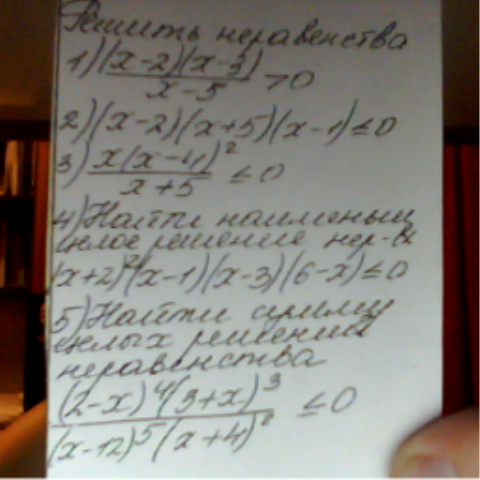 Решить неравенства
1) (x-2)(x-3) / x-5 > 0
2) (x-2)(x+5)(x-1) ≤ 0
3) x(x-4)² / x+5 ≤ 0
4) Найти наименьш
целое решение нер-ва
(x+2)²(x-1)(x-3)(6-x) ≤ 0
5) Найти сумму
целых решений
неравенства
(2-x)⁴(3+x)³ / (x-12)⁵(x+4)² ≤ 0